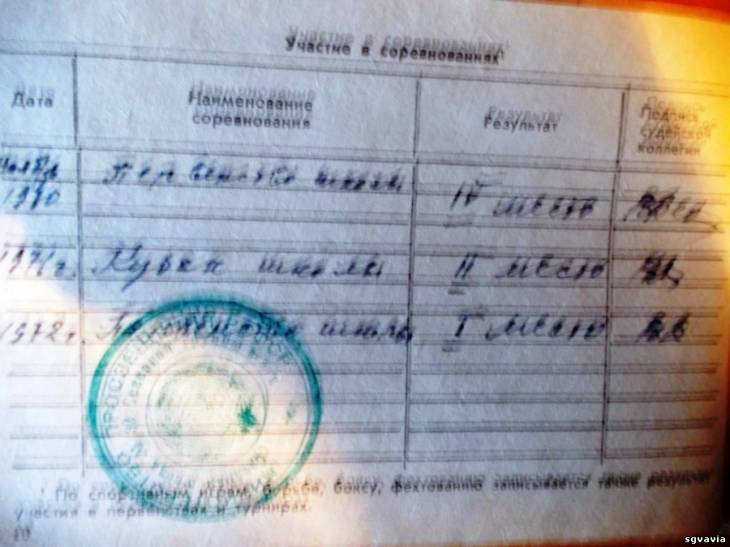 Участие в соревнованиях
Дата
Наименование
соревнования
Результат
Подпись
судейской
коллегии
1970
Первенство школы
IV место
1971 г.
Кубок школы
II место
1972 г.
Первенство школы
I место
¹ По спортивным играм, борьбе, боксу, фехтованию записывается также результат
участия в первенствах и турнирах.
sgvavia